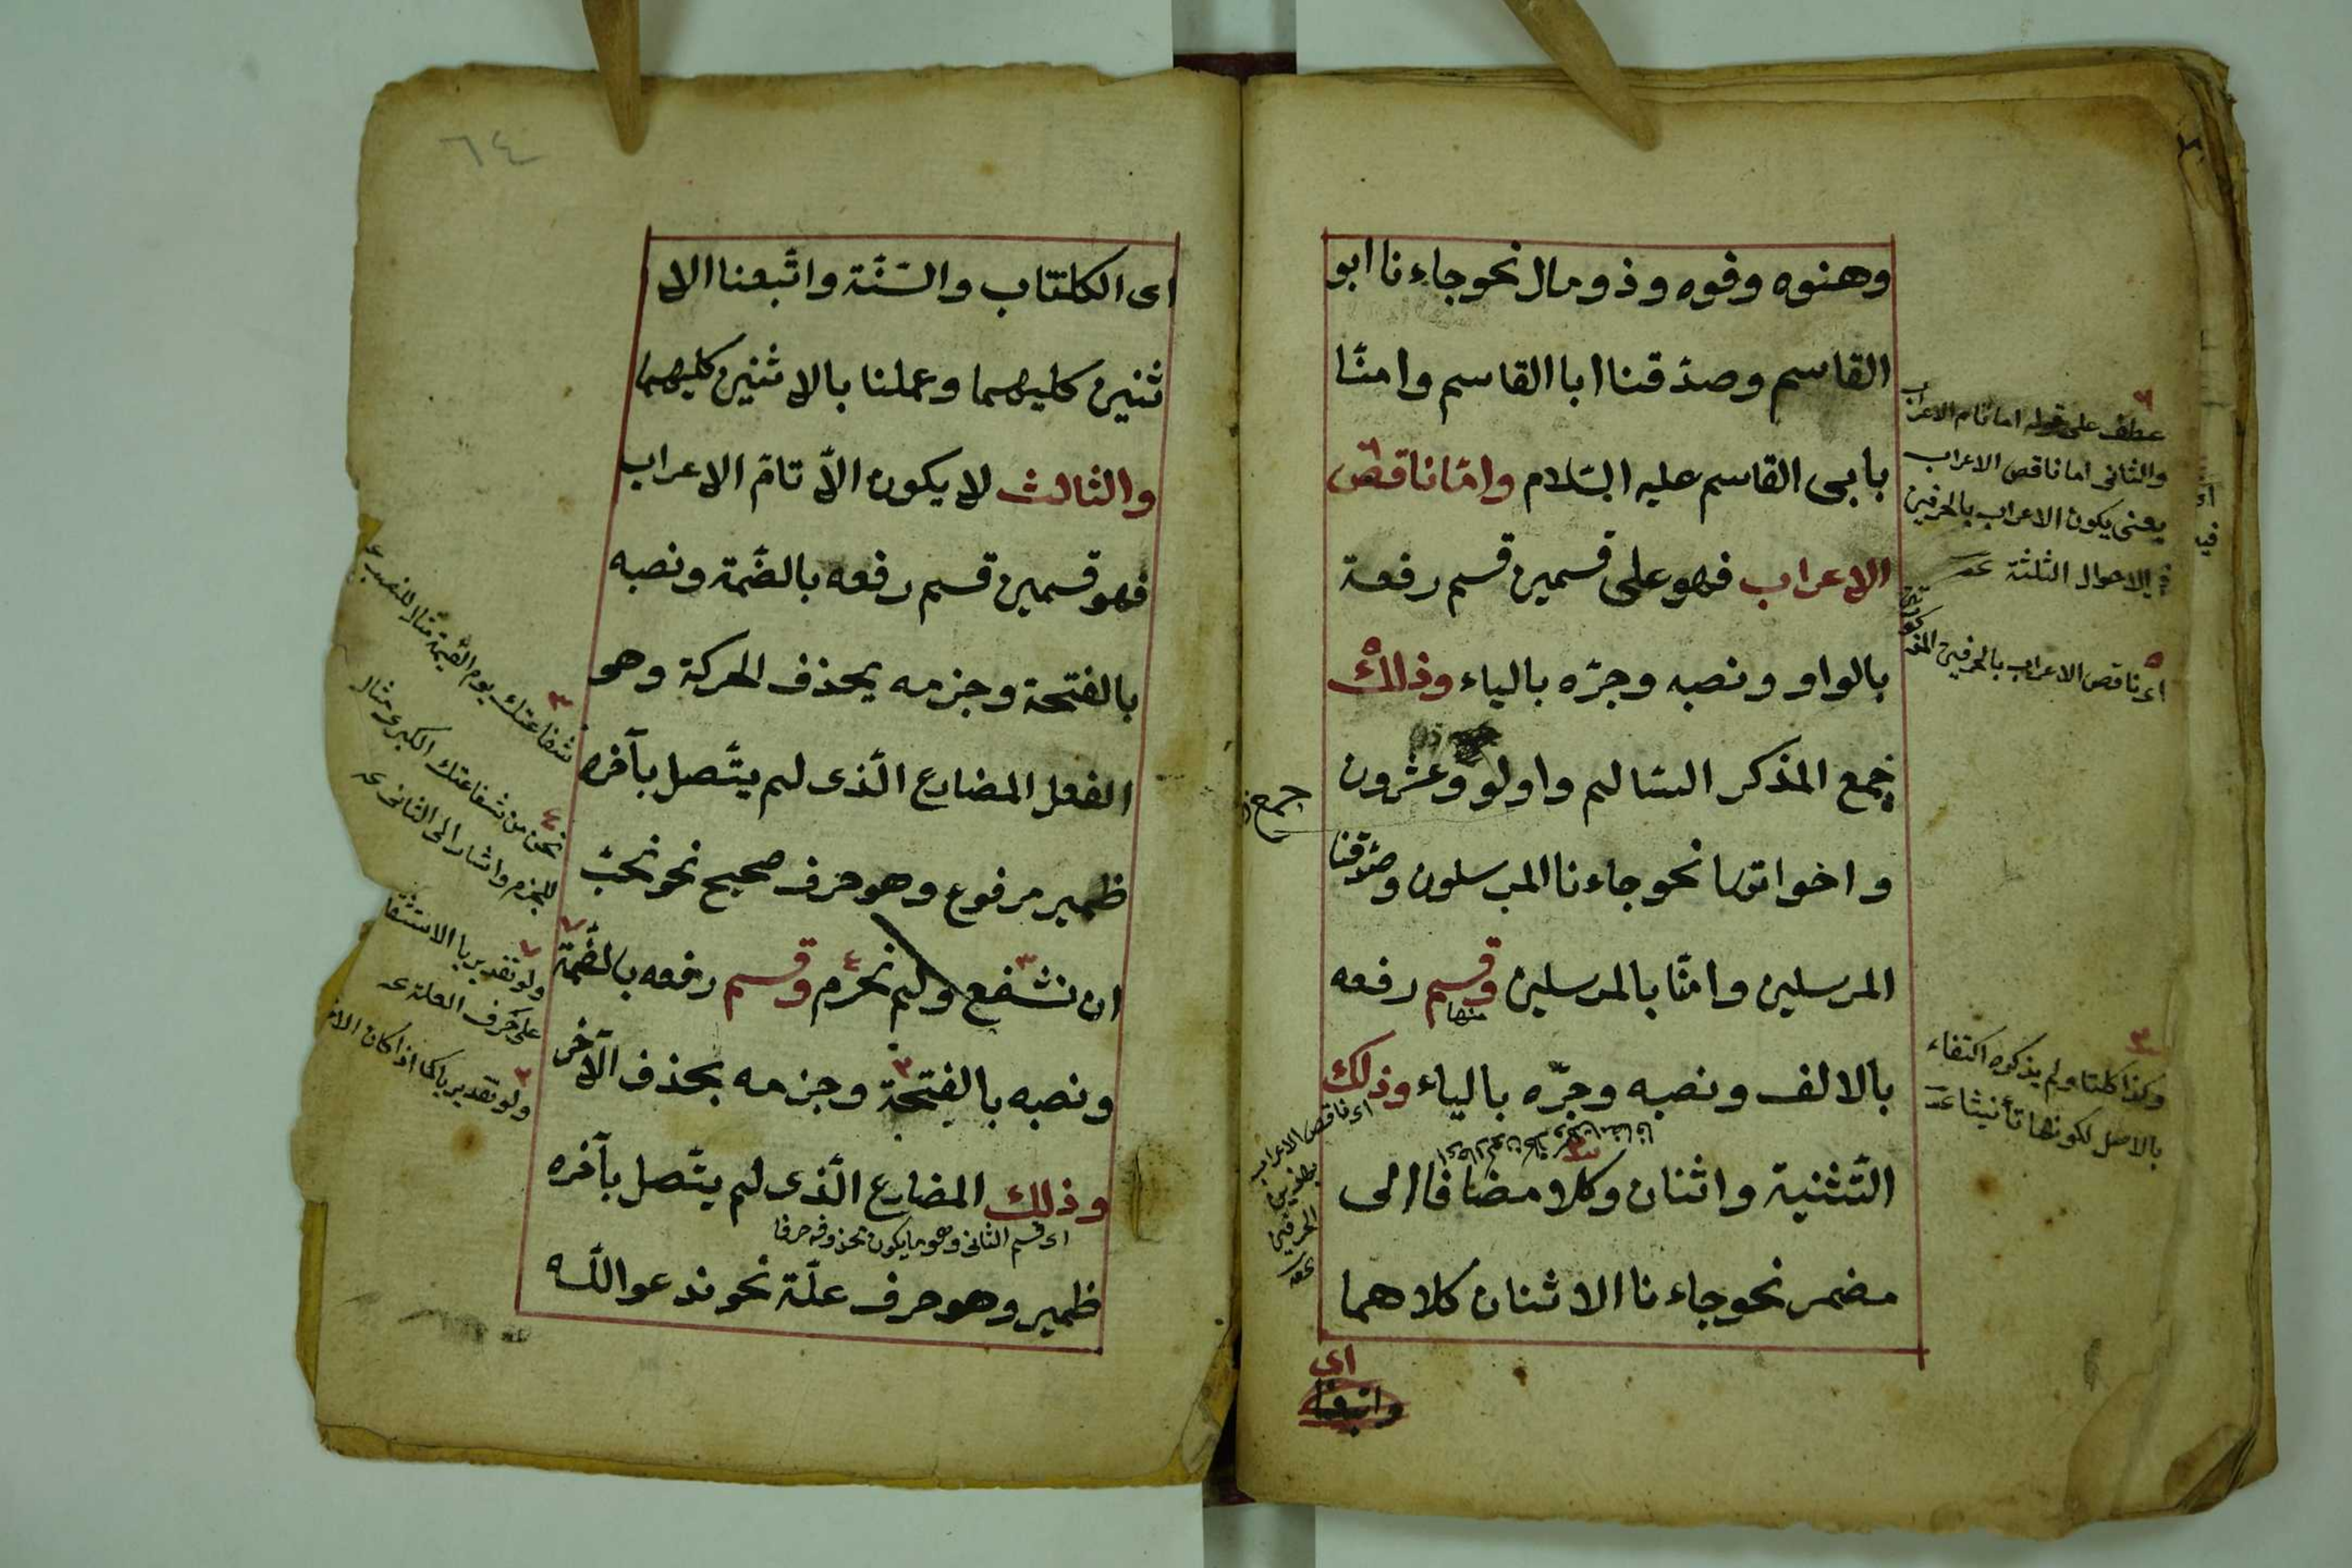 وهنوه وفوه وذو مال نحو جاءنا ابو
القاسم وصدّقنا ابا القاسم وامنّا
بابى القاسم عليه السّلام وامّا ناقص
الاعراب فهو على قسمين قسم رفعة
بالواو ونصبه وجرّه بالياء وذلك
جمع المذكر السّالم واولو وعشرون
واخواتها نحو جاءنا المرسلون وصدّقنا
المرسلين وامنّا بالمرسلين وقسم رفعه
منها
بالالف ونصبه وجرّه بالياء وذلك
التّثنية واثنان وكلا مضافا الى
مضمر نحو جاءنا الاثنان كلاهما
اى
واتبعنا
٦
عطف على قوله اما تام الاعراب
والثانى اما ناقص الاعراب
يعنى يكون الاعراب بالحرفين
فى الاحوال الثلثة عـ
٥
اى ناقص الاعراب بالحرفين
٣
وكذا كلتا ولم يذكره اكتفاء
بالاصل لكونها تأنيثا عـ
جمع
اى ناقص الاعراب
الحرفين
٦٤
اى الكلتاب والسّنّة واتّبعنا الا
ثنين كليهما وعملنا بالاثنين كليهما
والثالث لا يكون الاّ تامّ الاعراب
فهو قسمين قسم رفعه بالضّمة ونصبه
بالفتحة وجزمه بحذف الحركة وهو
الفعل المضارع الّذى لم يتّصل بآخره
ظمير مرفوع وهو حرف صحيح نحو نحبّ
ان نشفع ولم نحرم وقسم رفعه بالضّمة
ونصبه بالفتحة وجزمه بحذف الآخر
وذلك المضارع الّذى لم يتّصل بآخره
اى قسم الثانى وهو ما يكون محذوفه حرفا
ظمير وهو حرف علّة نحو ندعو اللّه
٣
شفاعتك يوم القيمة مثال للنصب عـ
٤
نحن من شفاعتك الكبرى مثال
للجزم واشار الى الثانى عـ
٧
ولو تقديريا
على حرف العلة عـ
٣
ولو تقديريا كما اذا كان